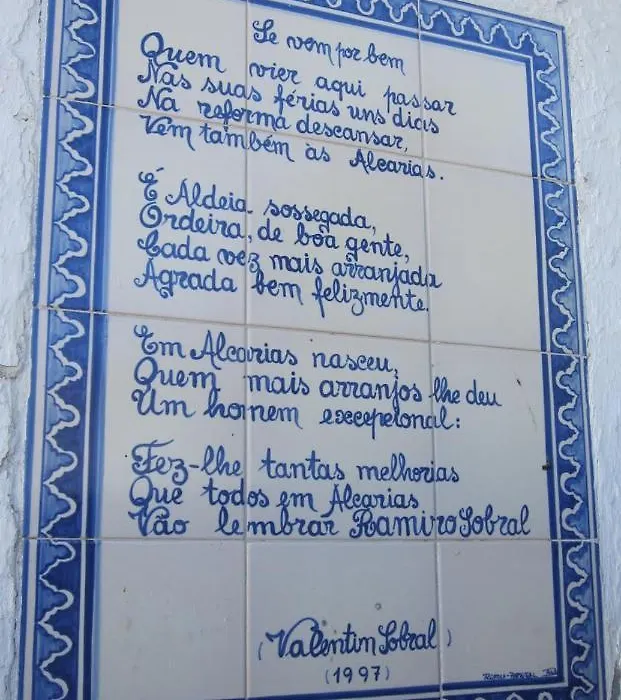 Se vem por bem
Quem vier aqui passar
Nas suas férias uns dias
Na reforma descansar,
Vem também às Alcarias.
É Aldeia sossegada,
Ordeira, de boa gente,
Cada vez mais arranjada
Agrada bem felizmente.
Em Alcarias nasceu,
Quem mais arranjos lhe deu
Um homem excepcional:
Fez-lhe tantas melhorias
Que todos em Alcarias
Vão lembrar Ramiro Sobral
(Valentim Sobral)
(1997)